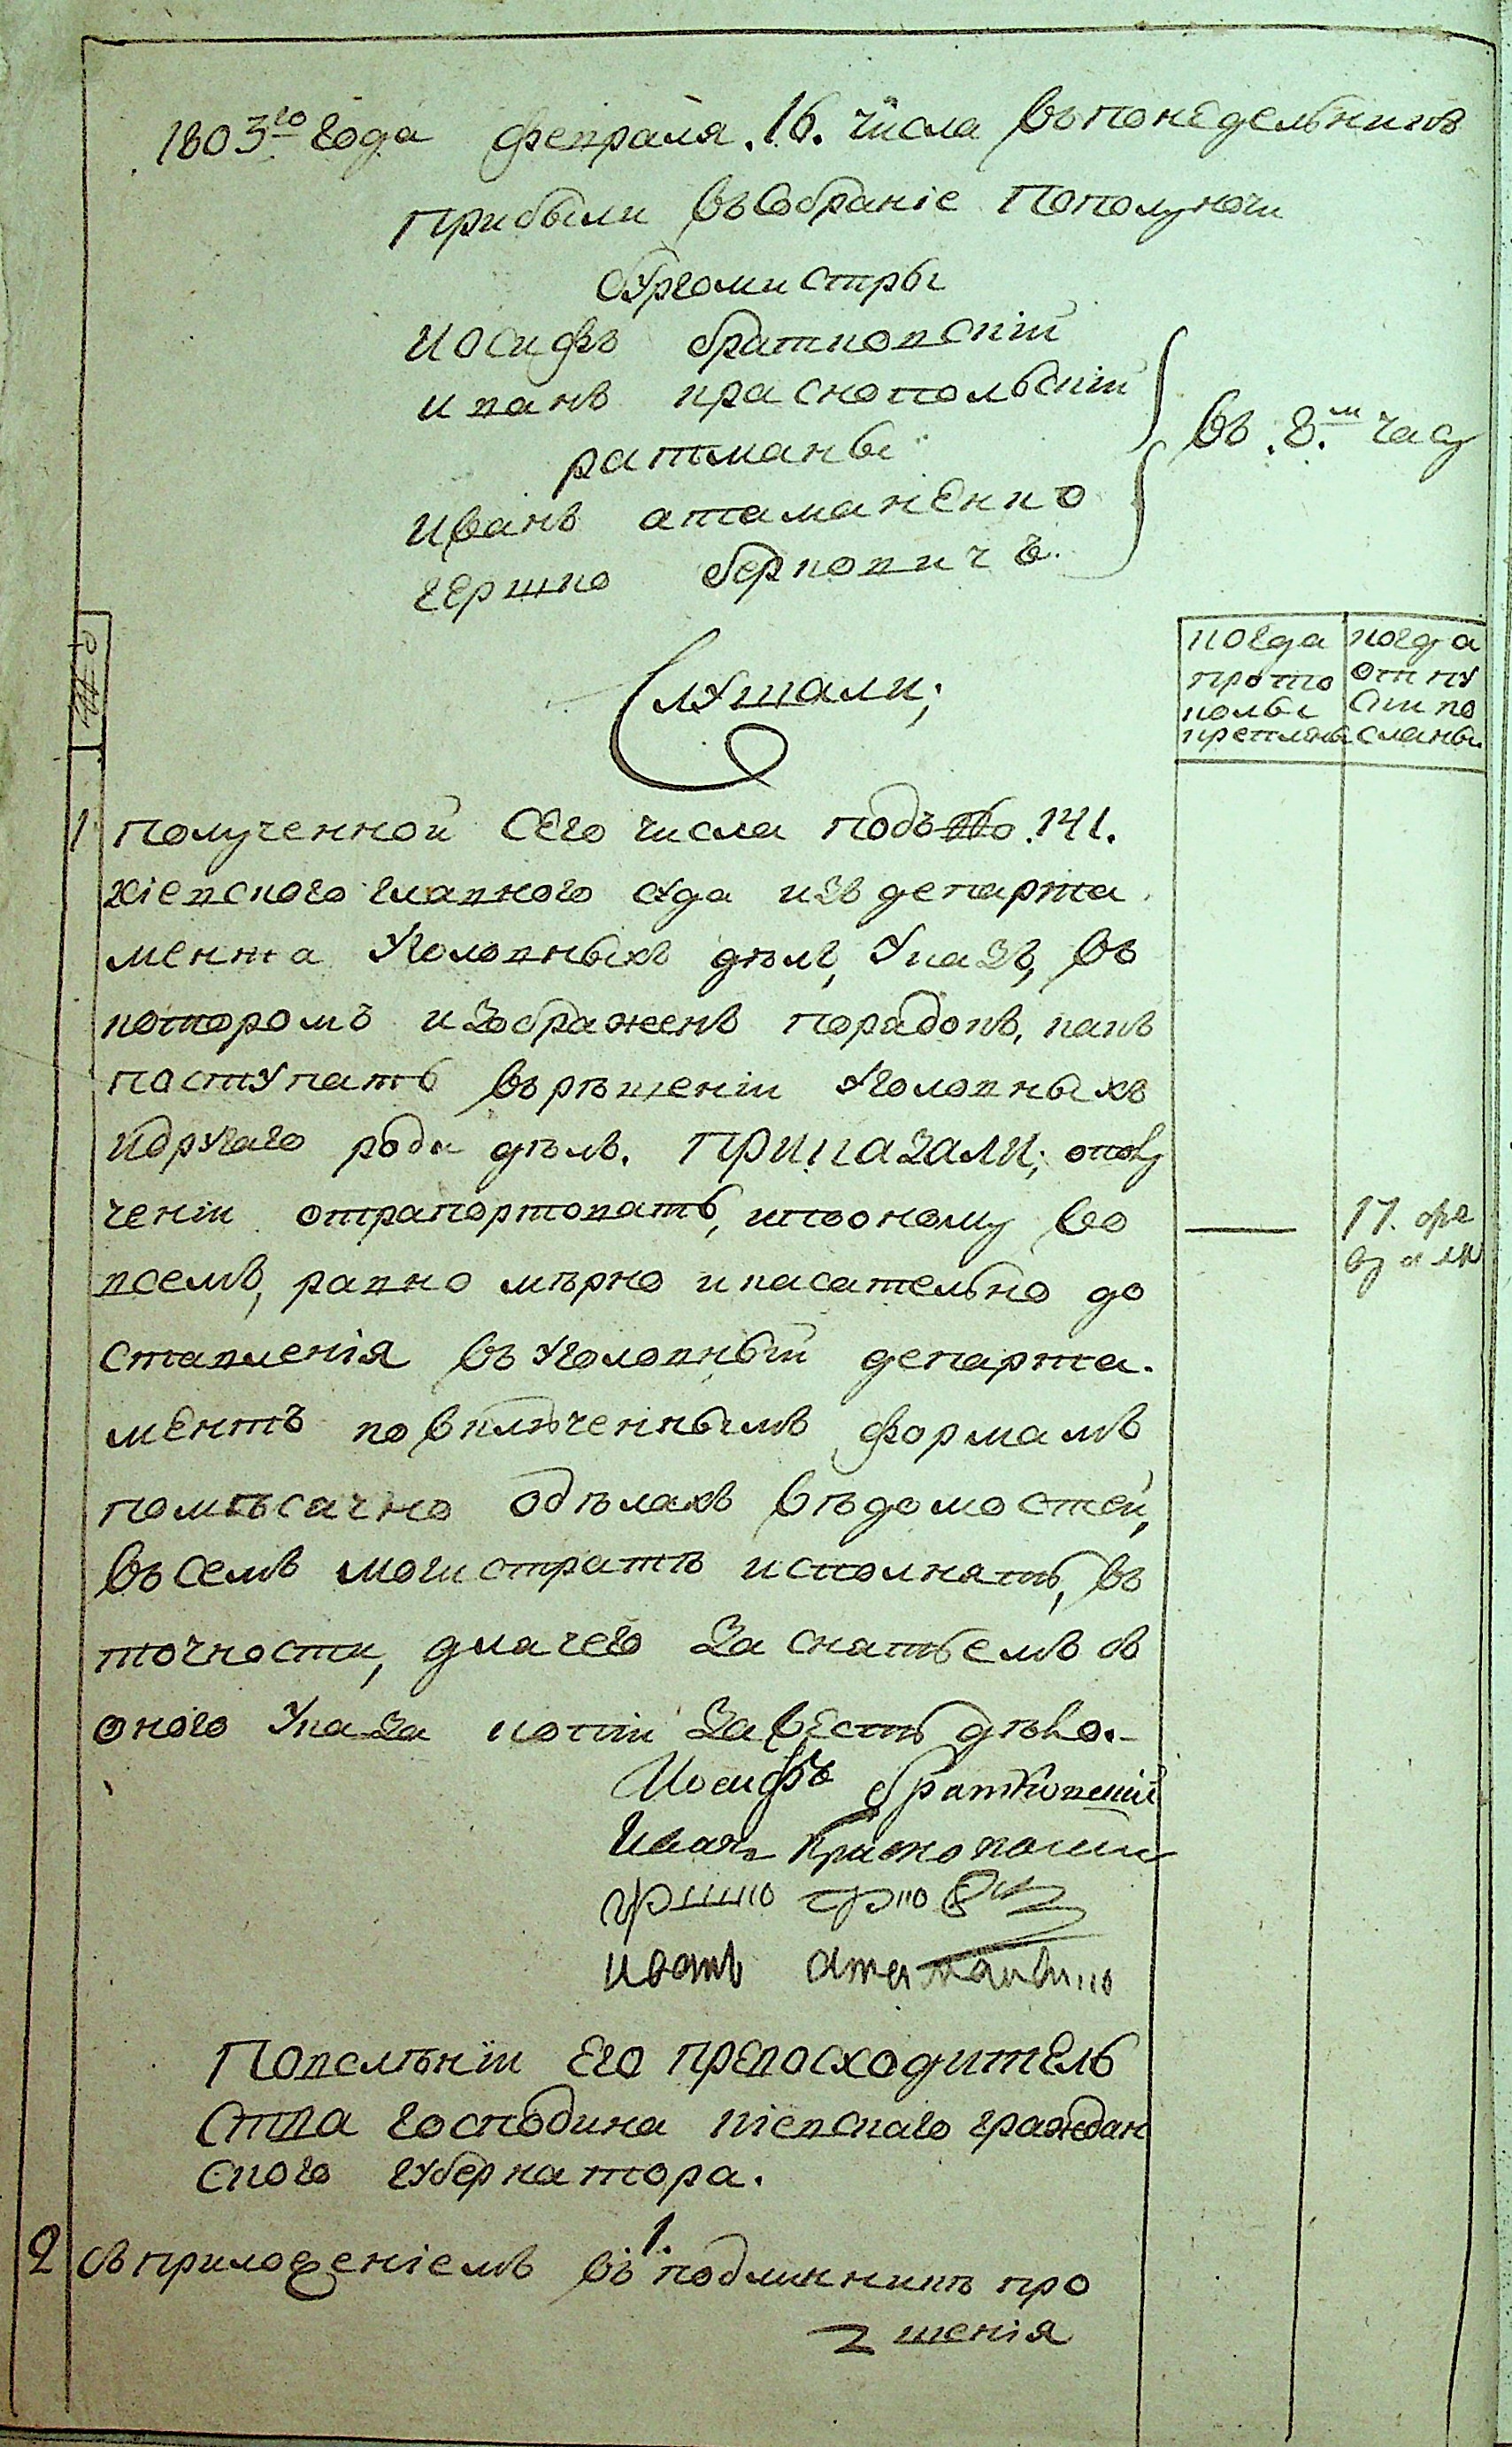 1803го года февраля. 16. числа въ понедельникъ
прибыли въ собраніе пополуночи
бургомистры
иосифъ братковскій
иванъ краснопольскій
ратманы
иванъ атаманенко
гершко берковичъ.
въ. 8.м часу
Слушали;
когда прото колы креплены
когда отпу ски по сланы.
1 полученной сего числа подъ №о. 141.
кіевского главного суда изъ департа
мента уголовныхъ делъ, указъ, въ
которомъ изображенъ порядокъ, какъ
поступать въ рѣшеніи уголовныхъ
и другаго рода дѣлъ. приказали; о полу
ченіи отрапортовать, и по оному во
всемъ, равно мѣрно и касательно до
ставленія въ уголовный департа.
ментъ по включеннымъ формамъ
помѣсячно о дѣлахъ вѣдомостей,
въ семъ магистратѣ исполнять, въ
точности, для чего за снятьемъ съ
оного указа копіи завесть дѣло.-
17. фе
вр аля
Иосифъ братковский
Иванъ Краснополски
гршко брко
иванъ атаманенко
По велѣніи его превосходитель
ства господина кіевскаго граждан
ского губернатора.
2 съ приложеніемъ въ 1. подлинникѣ про
2 шенія